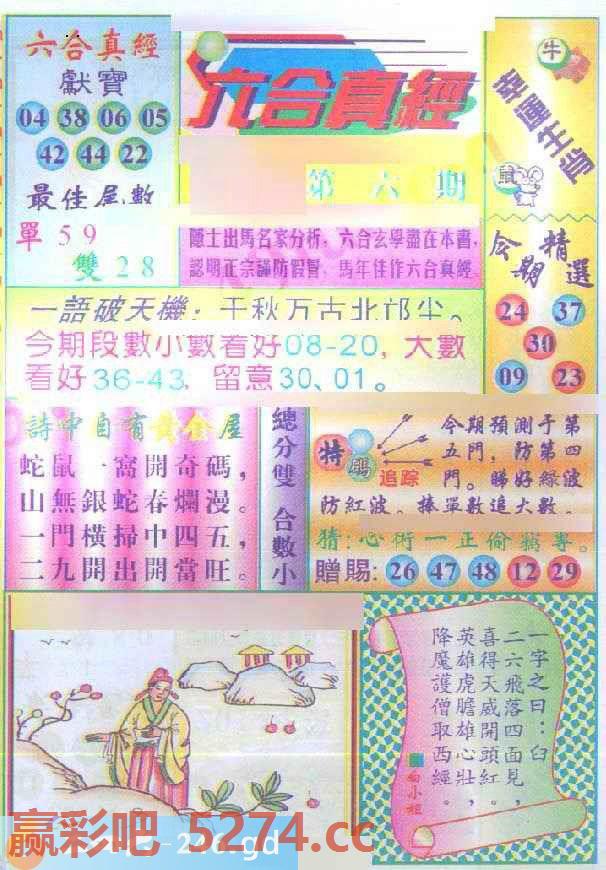 六合真經
獻寶
04 38 06 05
42 44 22
最佳尾數
單 59
雙 28
六合真經
第六期
隱士出馬名家分析，六合玄學盡在本書，
認明正宗謹防假冒，馬年佳作六合真經
牛
幸運生肖
鼠
今期精選
24 37
30
09 23
一語破天機：千秋万古北邙尘。
今期段數小數看好08-20，大數
看好36-43，留意30、01。
詩中自有黃金屋
蛇鼠一窩開奇碼，
山無銀蛇春爛漫。
一門橫掃中四五，
二九開出開當旺。
總分雙 合數小
特碼
追踪
今期預測于第
五門，防第四
門。睇好綠波
防紅波。捧單數追大數。
猜：心術一正倫
贈賜：26 47 48 12 29
一字之曰：臼
二六飛落四面見，
喜得天威開頭紅。
英雄虎膽雄心壯，
降魔護僧取西經。
小姐
赢彩吧 5274.cc
246.gd